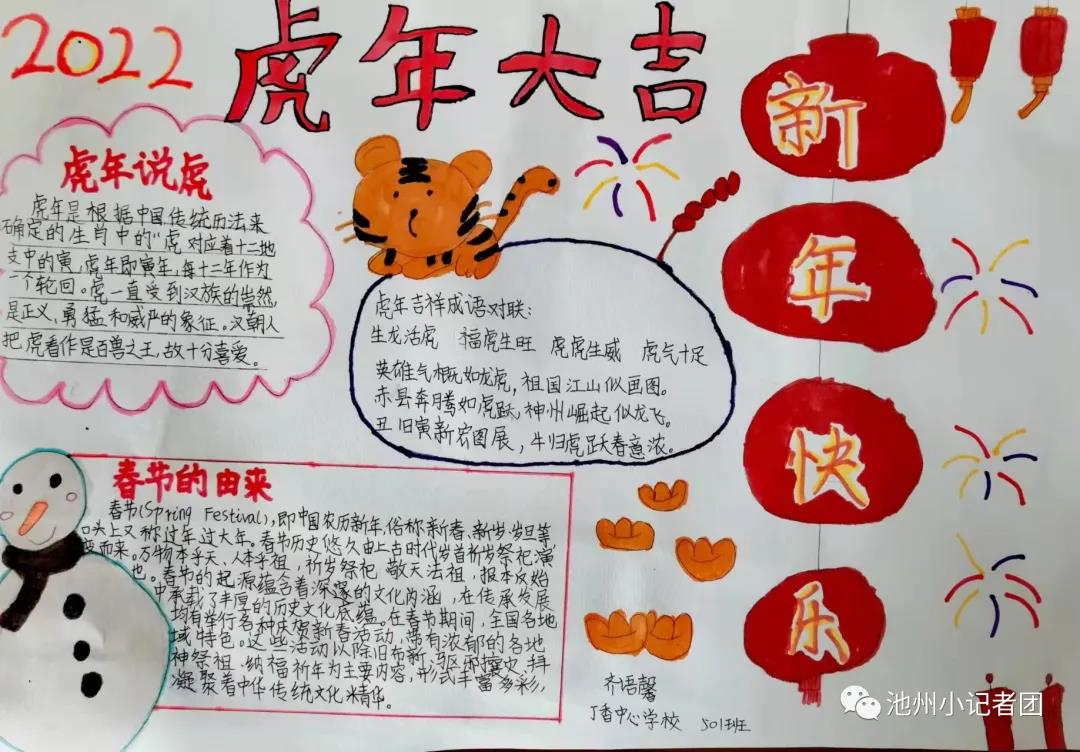 2022
虎年大吉
新
年
快
乐
虎年说虎
虎年是根据中国传统历法来
确定的生肖中的"虎对应着十二地
支中的寅,虎年即寅年,每十二年作为
一个轮回。虎一直受到汉族的
是正义、勇猛和威严的象征。汉朝人
把虎看作是百兽之王,故十分喜爱。
虎年吉祥成语对联:
生龙活虎 福虎生旺 虎虎生威 虎气十足
英雄气概如龙虎,祖国江山似画图。
赤县奔腾如虎跃,神州崛起似龙飞。
丑旧寅新宏图展,牛归虎跃春意浓。
春节的由来
春节(Spring Festival),即中国农历新年,俗称新春、新岁、岁旦等
口头上又称过年、过大年。春节历史悠久由上古时代岁首祈岁祭祀演
变而来。万物本乎天、人本乎祖,祈岁祭祀、敬天法祖,报本反始
也。春节的起源蕴含着深邃的文化内涵,在传承发展
中承载了丰厚的历史文化底蕴。在春节期间,全国各地
均有举行各种庆贺新春活动,带有浓郁的各地
域特色。这些活动以除旧布新、驱邪攘灾、拜
神祭祖、纳福祈年为主要内容,形式丰富多彩,
凝聚着中华传统文化精华。
齐语馨
丁香中心学校 501班
池州小记者团